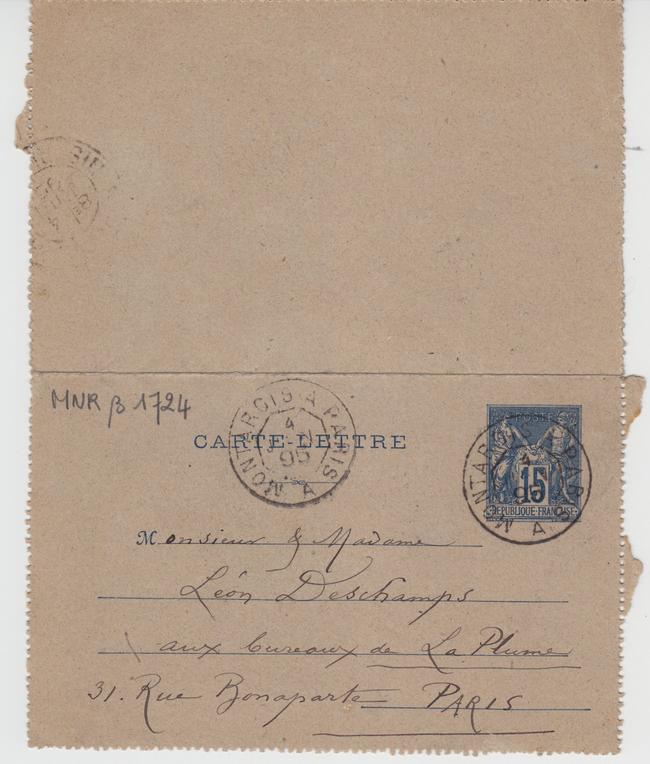 MNR β 1724
CARTE-LETTRE
MONTARGIS A PARIS
4
95
A
POSTE
15
REPUBLIQUE FRANÇAISE
MONTARGIS A PARIS
4
95
A
Monsieur & Madame
Léon Deschamps
aux bureaux de La Plume
31. Rue Bonaparte PARIS